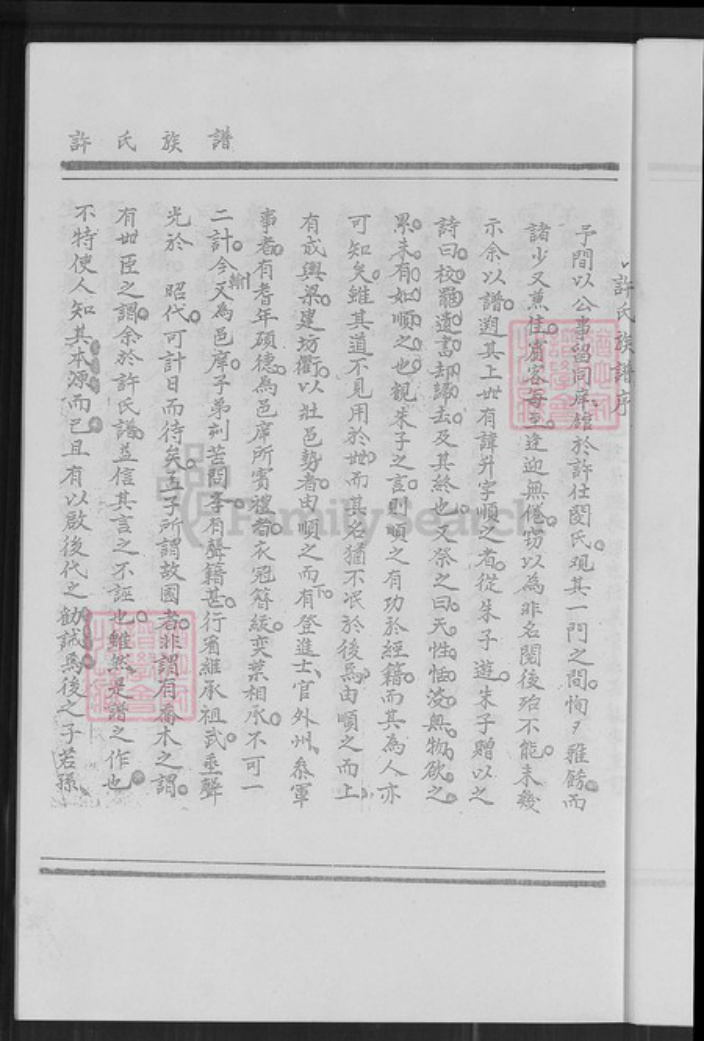 許氏族譜
許氏族譜序
予間以公事留同庠館於許仕閔氏。观其一門之間恂々雅飭而
諸少又熏佳。賓客每至逢迎無倦。窃以為非名閥後殆不能。未幾
示余以譜。遡其上世有諱升字順之者。從朱子遊。朱子贈以之
詩曰。校罷遺書却歸去。及其終也。又祭之曰。天性恬淡。無物欲之
累。未有如順之也。觀朱子之言則順之有功於經籍。而其為人亦
可知矣。雖其道不見用於世。而其名猶不泯於後焉。由順之而上
有成輿梁建坊衢。以壯邑勢者。由順之而下有登進士、官外州、叅軍
事者。有耆年碩德為邑庠所賓禮者。衣冠簪綬奕葉相承。不可一
二計。今翰又為邑庠子弟。刻苦問學有聲籍甚。行看維承祖武垂聲
光於 昭代。可計日而待矣。孟子所謂故國者。非謂有喬木之謂。
有世臣之謂。余於許氏譜益信其言之不誣也。雖然是譜之作也。
不特使人知其本源而已。且有以啟後代之勸誡焉。後之子若孫、
FamilySearch